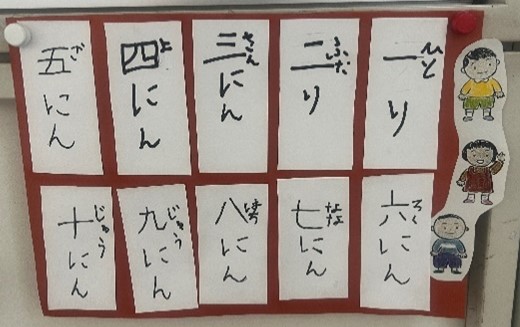 ひと
一り
ふた
二り
さん
三にん
よ
四にん
ご
五にん
ろく
六にん
なな
七にん
はち
八にん
九にん
じゅう
十にん